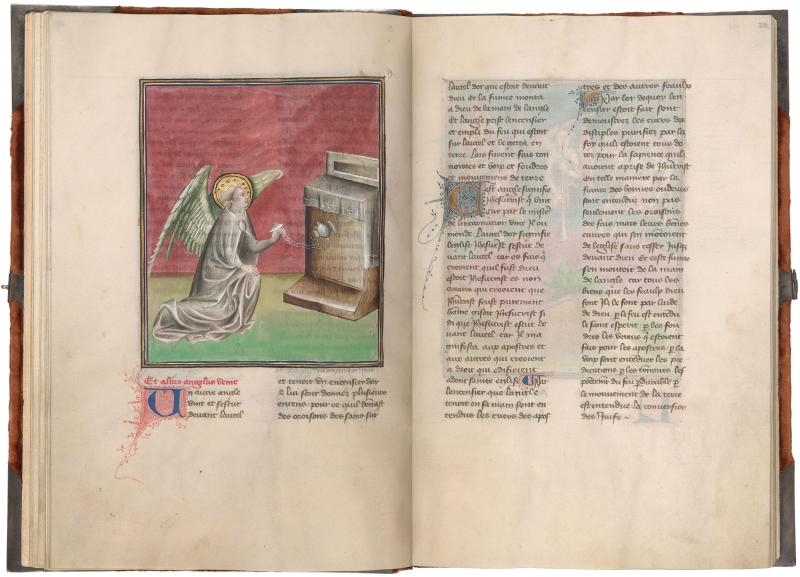 Et alius angelus venit
Un autre angle
vint et sestut
devant lautel
et tenoit un encensier dor
& lui sont donnez plusieurs
encens pour ce quil donast
des oroisons des sains sur
lautel dor qui estoit devant
dieu Et la fumee monta
a dieu de la main de langle
Et langle prist lencensier
et empli du feu qui estoit
sur lautel et le getta en
terre Lors furent fais ton
noirres et voix et foudres
et mouvemens de terre
Cest angle signifie
Jhesucrist qui vint
car par le mistere
de lincarnation vint il ou
monde Lautel dor signifie
leglise Jhesucrist sestut de
vant lautel car es fois qui
creoient quil fust dieu
estoit Jhesucrist et non
creans qui creoient que
Jhesucrist feust purement
homme
di que Jhesucrist estut de
vant lautel car il ma
nifesta aux apostres et
aux autres qui creoient
a droit qui edifioient
adont sainte eglise Par
lencensier que langle
tenoit en sa main sont en
tendus les cuers des apos
tres et des autres feaulx
Par lor dequoy len
censier estoit fait sont
demonstrez les cuers des
disciples purifiez par la
foy quilz estoient tous do
rez par la sapience quilz
avoient aprise de Jhesucrist
En telle maniere par la
fumee des bonnes oudeurs
sont entendu non pas
seulement les oroisons
des fais mais leurs bonnes
euvres qui sen montoient
de leglise sans cesser jusqz
devant dieu Et ceste fumee
sen montoit de la main
de langle car tous les
biens que les feaulx dieu
font Ilz le font par laide
de dieu. p le feu est entendu
le saint esperit. p les fou
dres les vertus qui estoient
fais pour les apostres. p la
voix sont entendues les pre
dications p les tonoires les
du feu pdurable p
le mouvement de la terre
est entendue la conversion
des Juifs